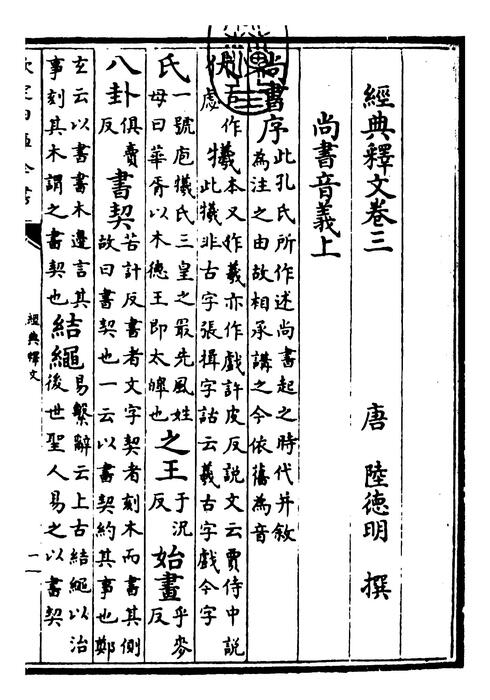 經典釋文卷三 唐 陸德明 撰
尚書音義上
尚書序 此孔氏所作述尚書起之時代并敘
為注之由故相承講之今依舊為音
伏 古作
處 犧 本又作羲亦作戲許皮反說文云賈侍中說
此犧非古字張揖字詁云羲古字戲今字
氏 一號庖犧氏三皇之最先風姓
母曰華胥以木德王即太皥也 之王 于況
反 始畫 乎麥
反
八卦 俱賣
反 書契 苦計反書者文字契者刻木而書其側
故曰書契也一云以書契約其事也鄭
玄云以書書木邊言其
事刻其木謂之書契也 結繩 易繫辭云上古結繩以治
後世聖人易之以書契
經典釋文
一